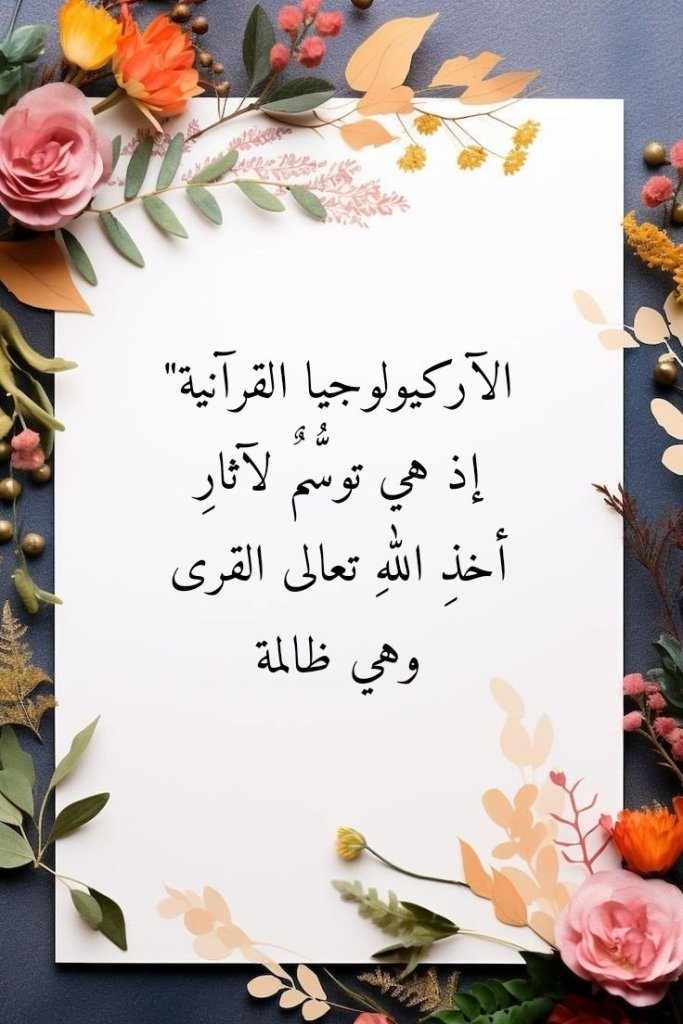 الآركيولوجيا القرآنية"
إذ هي توسُّمٌ لآثارِ
أخذِ اللهِ تعالى القرى
وهي ظالمة